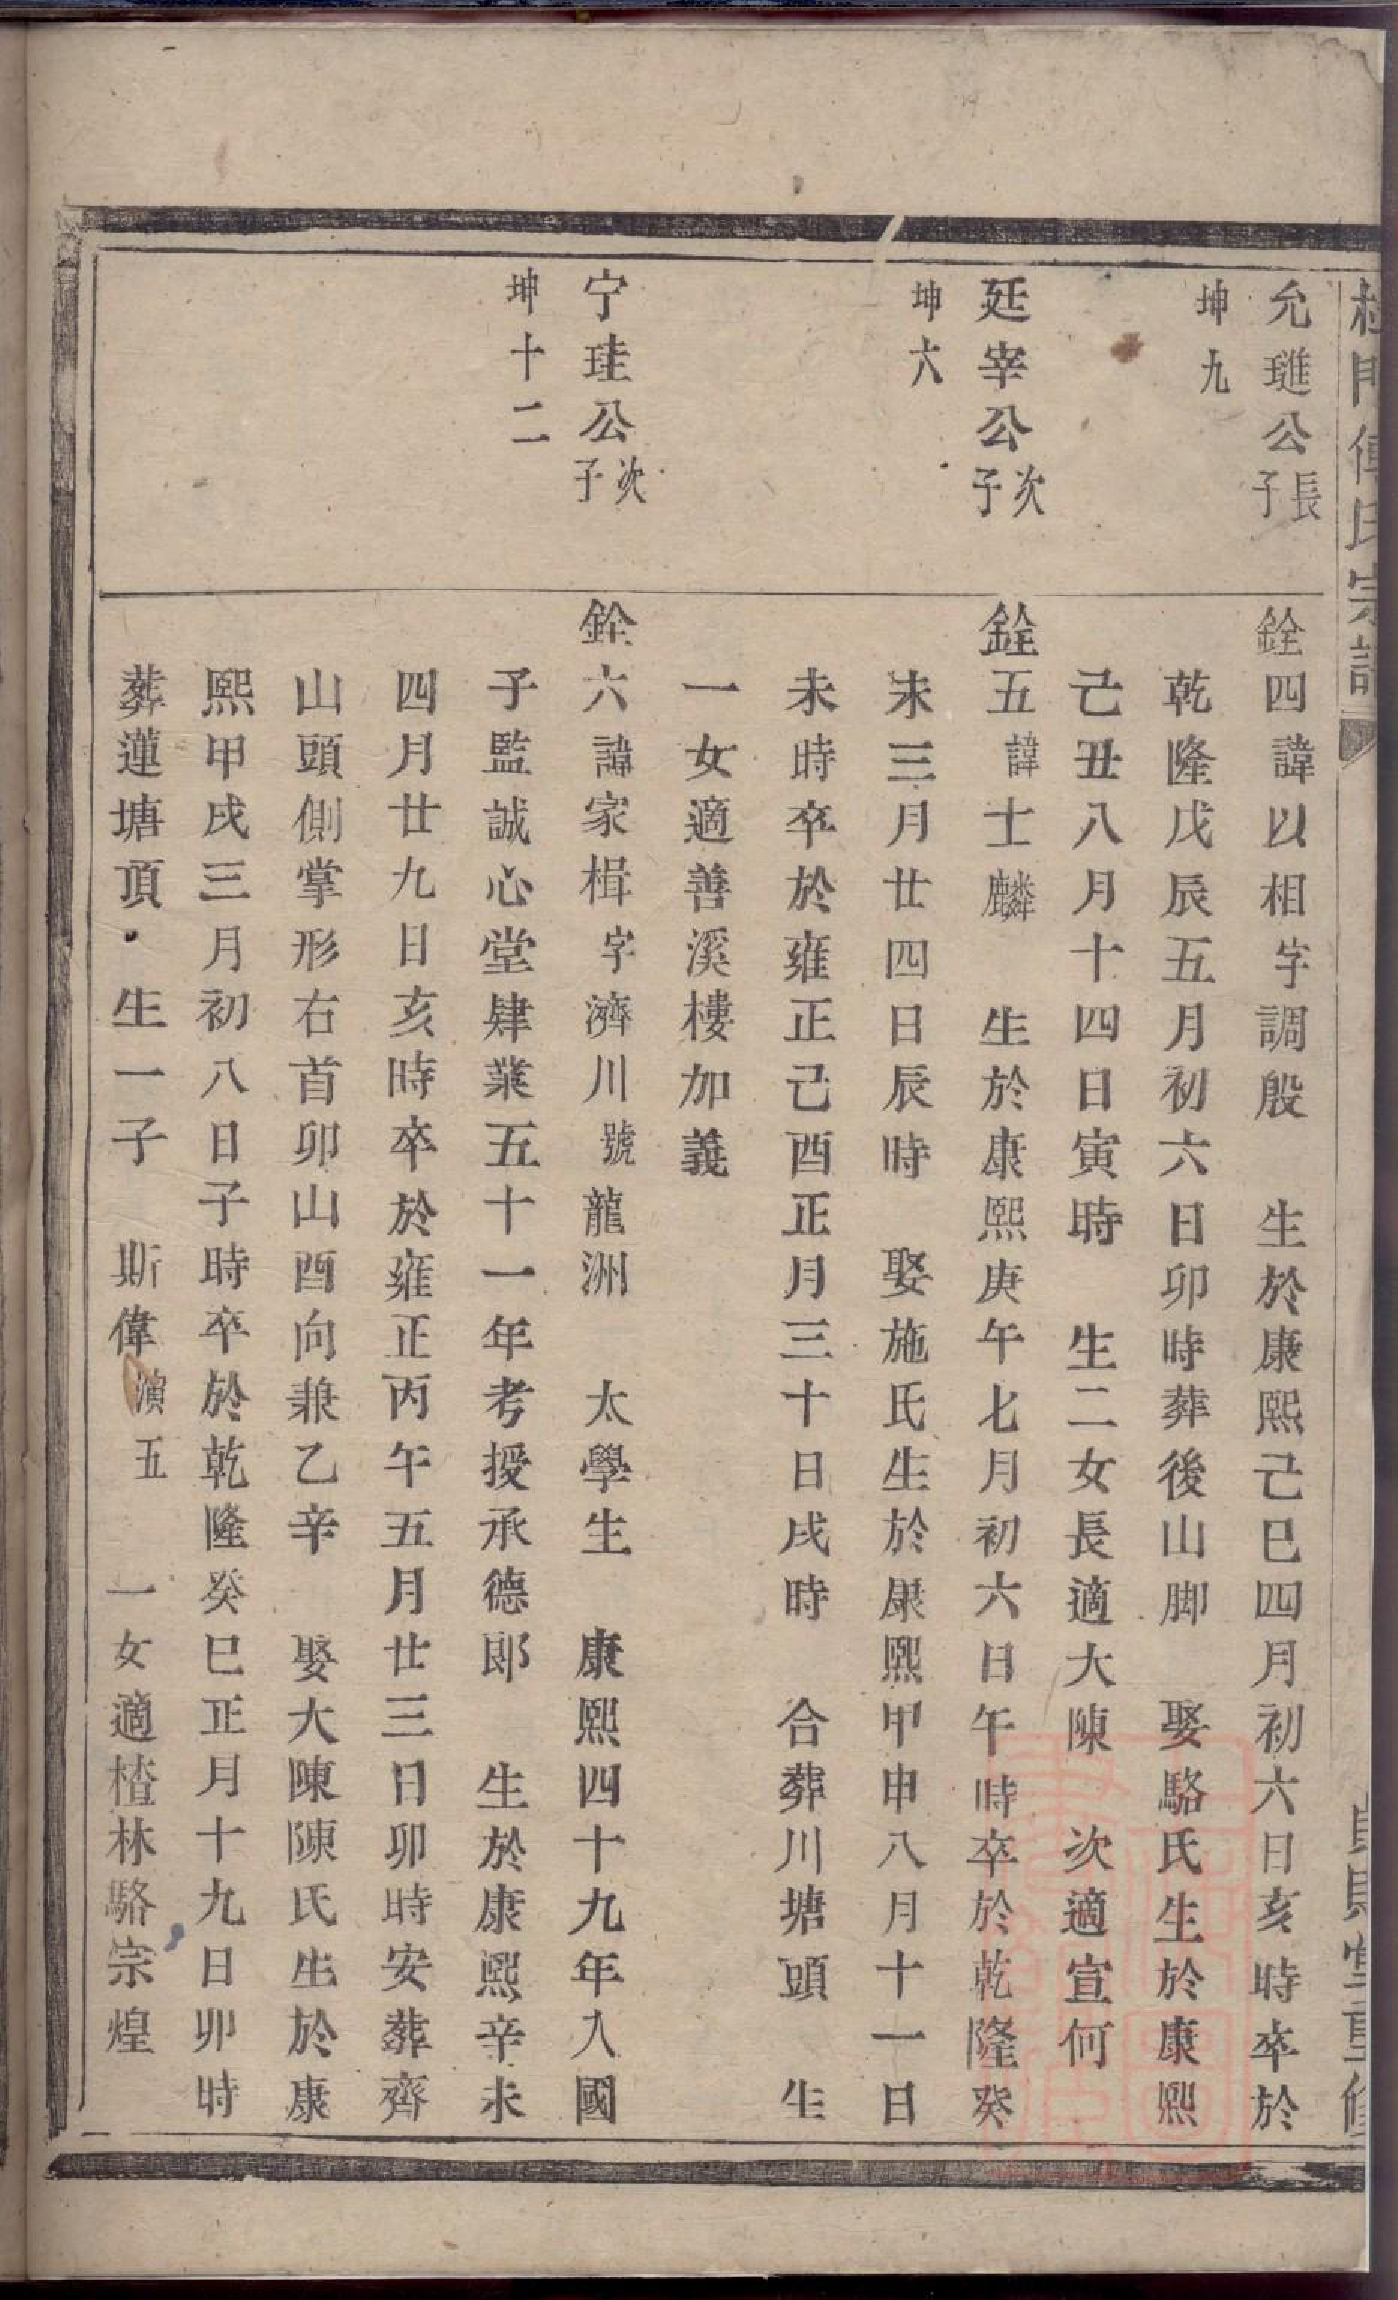 傅氏宗譜
允璡公長子
坤九
銓四諱以相字調殷　生於康熙己巳四月初六日亥時卒於
乾隆戊辰五月初六日卯時葬後山脚　娶駱氏生於康熙
己丑八月十四日寅時　生二女長適大陳　次適宣何
廷宰公次子
坤六
銓五諱士麟　生於康熙庚午七月初六日午時卒於乾隆癸
未三月廿四日辰時　娶施氏生於康熙甲申八月十一日
未時卒於雍正己酉正月三十日戌時　合葬川塘頭　生
一女適善溪樓加義
宁珪公次子
坤十二
銓六諱家楫字濟川號龍洲　太學生　康熙四十九年入國
子監誠心堂肄業五十一年考授承德郎　生於康熙辛未
四月廿九日亥時卒於雍正丙午五月廿三日卯時安葬齊
山頭側掌形右首卯山酉向兼乙辛　娶大陳陳氏生於康
熙甲戌三月初八日子時卒於乾隆癸巳正月十九日卯時
葬蓮塘頂．生一子　斯偉演五　一女適楂林駱宗煌